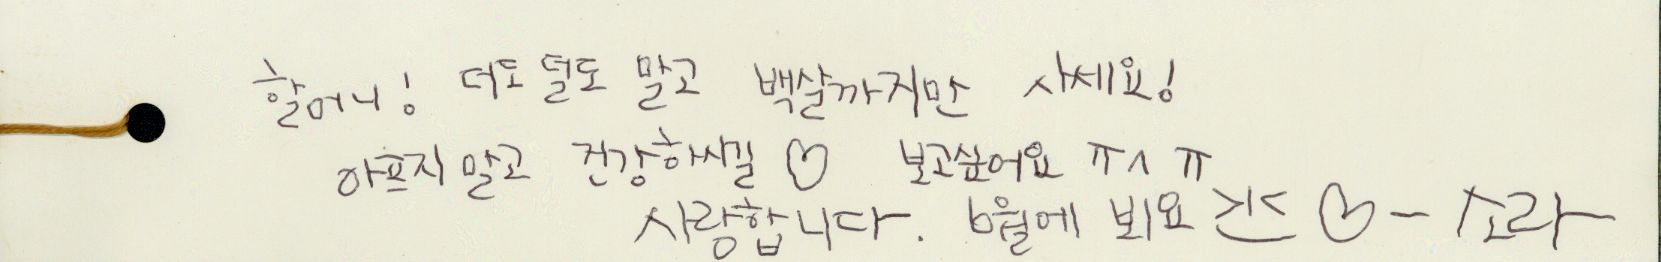 할머니! 더도 덜도 말고 백살까지만 사세요!
아프지 말고 건강하시길 ♡ 보고싶어요 ㅠㅅㅠ
사랑합니다. 6월에 뵈요 >_< ♡ - 소라 -